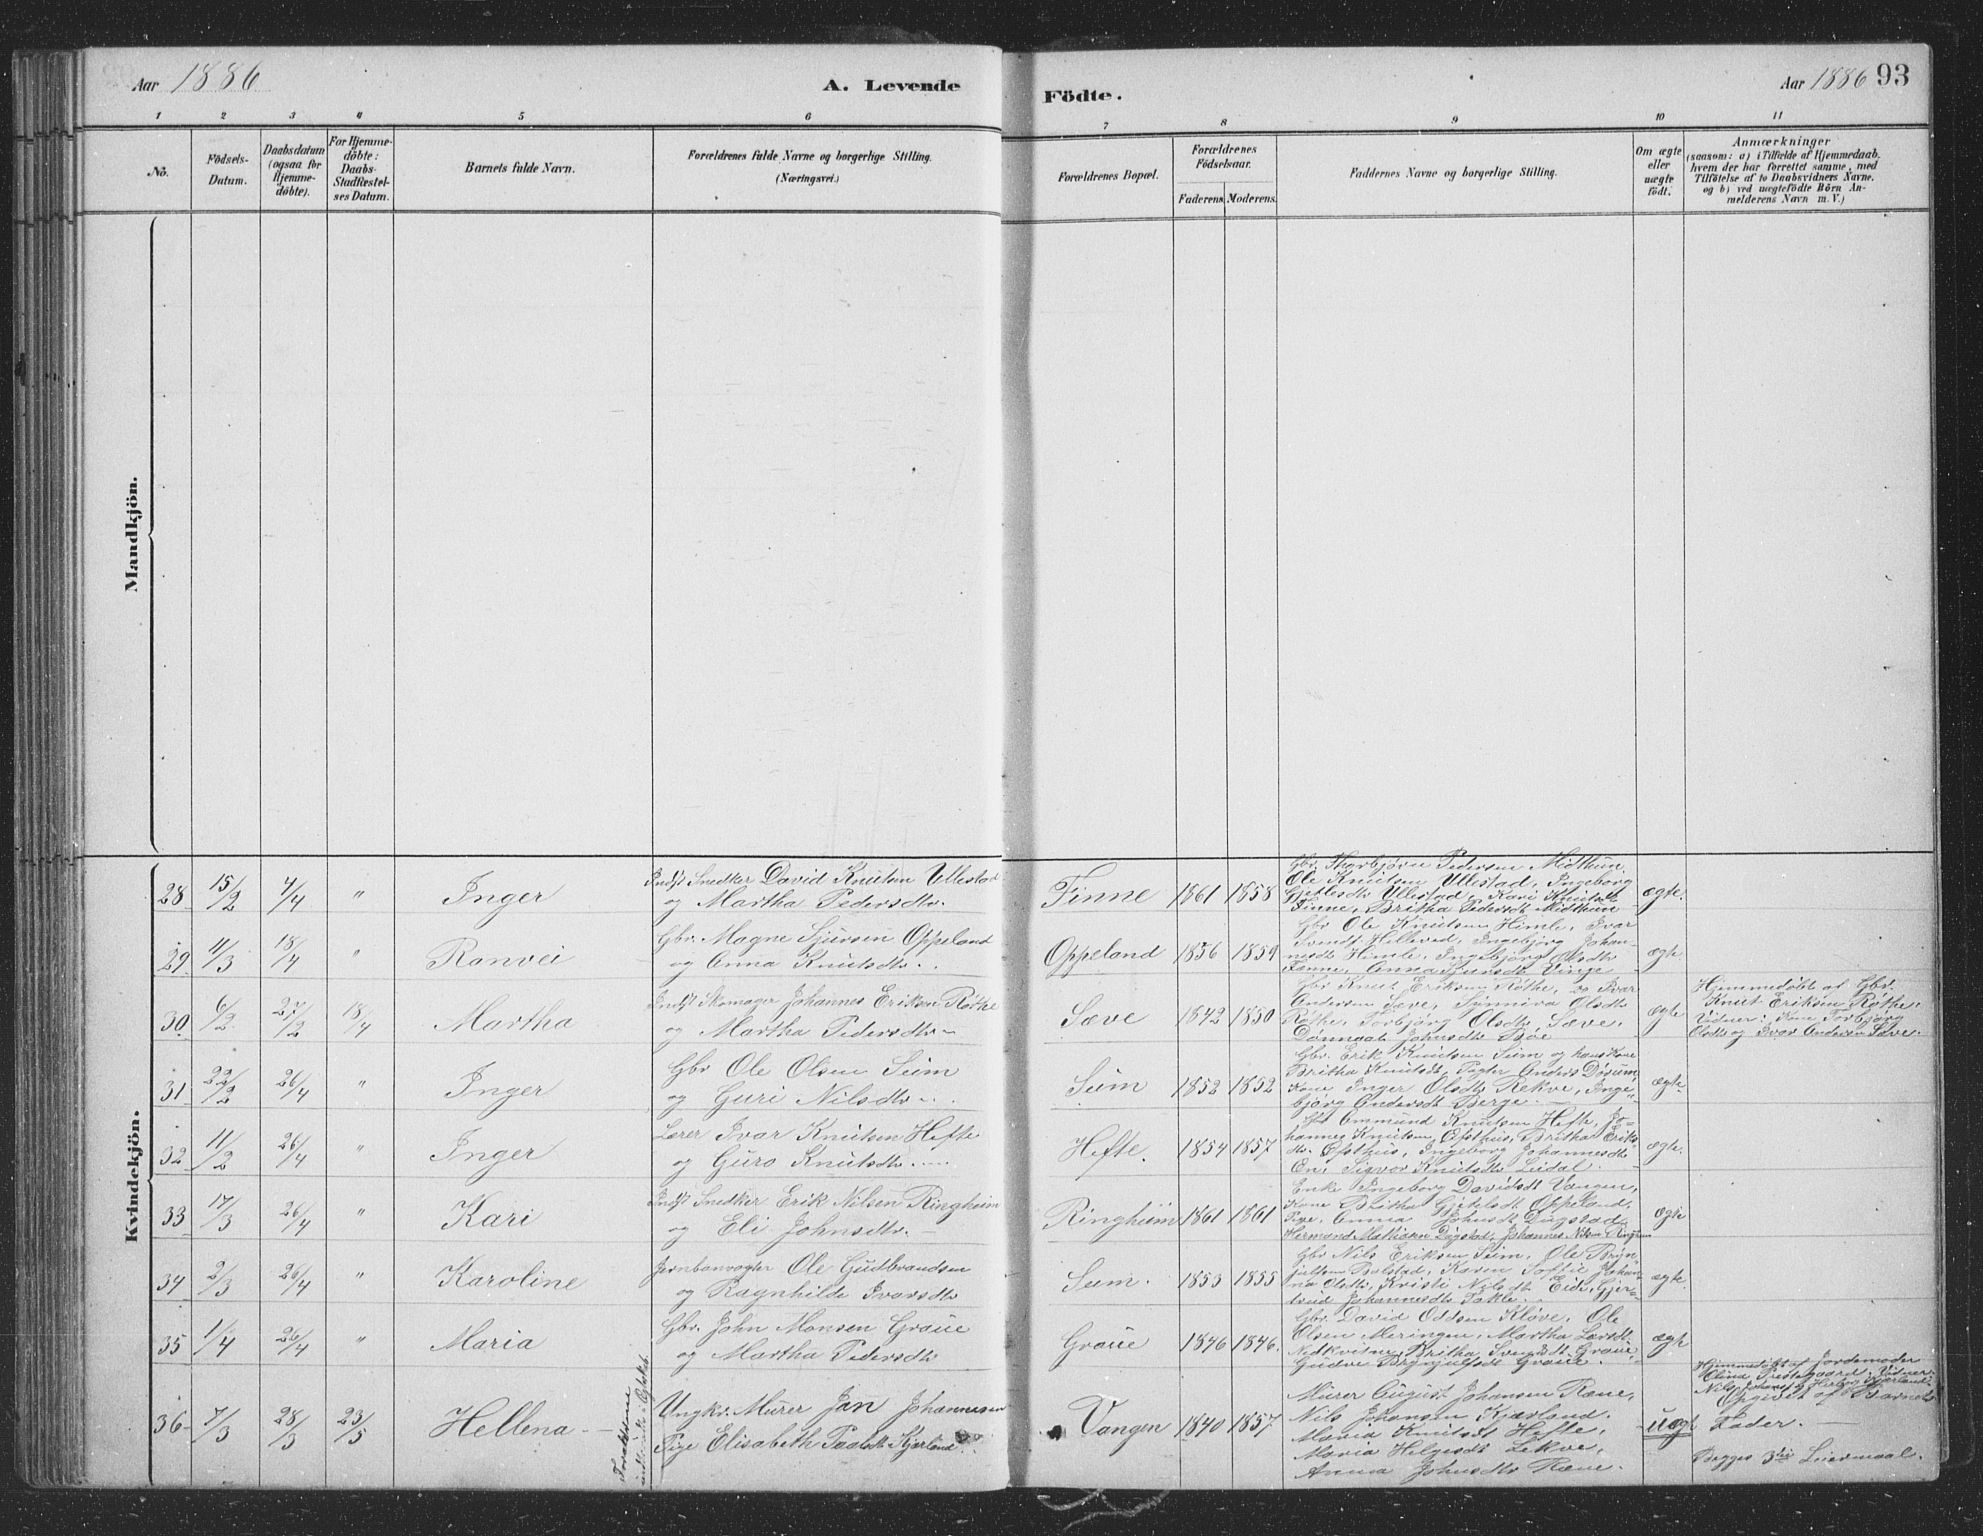 Aar 1886
A. Levende
Födte.
Aar 1886 93
1 2 3 4 5 6 7 8 9 10 11
No.
Födsels-
Datum.
Daabsdatum
(ogsaa for
Hjemme-
döbte).
For Hjemme-
döbte:
Daabs-
Stadfæstel-
ses Datum.
Barnets fulde Navn.
Forældrenes fulde Navne og borgerlige Stilling.
(Næringsvei.)
Forældrenes Bopæl.
Forældrenes
Födselsaar.
Faderens. Moderens.
Faddernes Navne og borgerlige Stilling.
Om ægte
eller
uægte
födt.
Anmærkninger
(saasom: a) i Tilfælde af Hjemmedaab,
hvem der har forrettet samme, med
Tilföielse af to Daabsvidners Navne,
og b) ved uægtefödte Börn An-
melderens Navn m. V.)
Mandkjön.
Kvindekjön.
28 15/2 4/4 " Inger
Indst Snedker David Knutsen Ullestad
og Martha Pedersdtr.
Finne 1861 1858
Gbr. Thorbjørn Pedersen Midthun,
Ole Knutsen Ullestad, Ingeborg
Gjetlesdtr Ullestad, Kari Knutsdtr
Finne, Britha Pedersdt Midthun
ægte.
29 11/3 18/4 " Ranvei
Gbr. Magne Sjursen Oppeland
og Anna Knutsdtr.
Oppeland 1856 1859
Gbr Ole Knutsen Himle, Ivar
Svends Helleved, Ingebjørg Johan-
nesdt Himle, Ingebjørg Olsdtr
Fenne, Anna Sjursdtr Vinge
ægte
30 6/2 27/2 18/4 Martha
Indst Skomager Johannes Eriksen Røthe
og Martha Pedersdtr
Sæve 1842 1850
Gbr Knut Eriksen Røthe, og Ivar
Andersen Sæve, Synniva Olsdtr
Røthe, Torbjørg Olsdtr Sæve,
Johnsdtr Bøe
ægte
Hjemmedøbt af Gbr.
Knut Eriksen Røthe.
Vidner: Kone Torbjørg
Olsdtr og Ivar Andersen Sæve.
31 22/2 26/4 " Inger
Gbr Ole Olsen Seim
og Guri Nilsdtr.
Seim 1852 1852
Gbr. Erik Knutsen Seim og hans Kone
Britha Knutsdt, Anders
Kone Inger Olsdtr Rekve, Inge-
bjørg Andersdt Berge.
ægte
32 11/2 26/4 " Inger
Lærer Ivar Knutsen Hefte
og Guro Knutsdtr.
Hefte. 1854 1857
Ommund Knutsen Hefte, Jo-
hannes Knutsen Øfsthus, Britha Eriks-
dtr. Øfsthus, Ingeborg Johannesdt
En, Sigvor Knutsdtr Leidal.
ægte.
33 17/3 26/4 " Kari
Indst Snedker Erik Nilsen Ringheim
og Eli Johnsdtr.
Ringheim 1861 1861
Enke Ingeborg Davidsdt Vangen,
Kone Britha Gjetlsdt Oppeland,
Pige, Anna Johnsdt Dugstad,
Hermand Mathisen Dugstad, Johannes Nilsen Ringheim
ægte
34 2/3 26/4 " Karoline
Jernbanvogter Ole Gudbrandsen
og Ragnhilde Ivarsdtr
Seim. 1853 1855
Gbr Nils Eriksen Seim, Ole Bryn-
julfsen Bolstad, Karen Sofie Johan-
na Olsdtr, Kristi Nilsdt Eide, Gjer-
trud Johannesdtr Takle.
ægte.
35 1/4 26/4 " Maria
Gbr. John Monsen Graue
og Martha Pedersdtr
Graue 1846 1846.
Gbr. David Oddsen Kløve, Ole
Olsen Meringen, Martha Larsdt.
Nedkvitne, Britha Svensdt Graue,
Gudve Brynjulfsdt Graue.
ægte
36 7/3 28/3 23/5 Hellena
Forældrene
Ungkr. Murer Jan Johannesen
Pige Elisabeth Paalsdt Kjerland.
Vangen 1840 1857
Murer August Johansen Rene,
Nils Johansen Kjærland.
Maria Knutsdt Hefte,
Maria Helgesdt Lekve,
Anna Johnsdtr Rene.
uægte
Hjemmedøbt af Jordemoder
Olina Prestegaard, Vidner
Nils Johans og Herborg Kjærland.
Opgivet af Barnets
Fader.
Begges 3die Leiermaal.